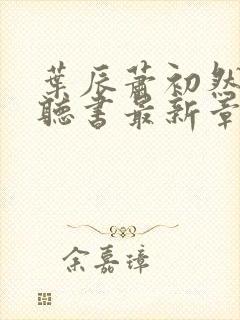 葉辰蕭初然
聽書最新章
余嘉璋